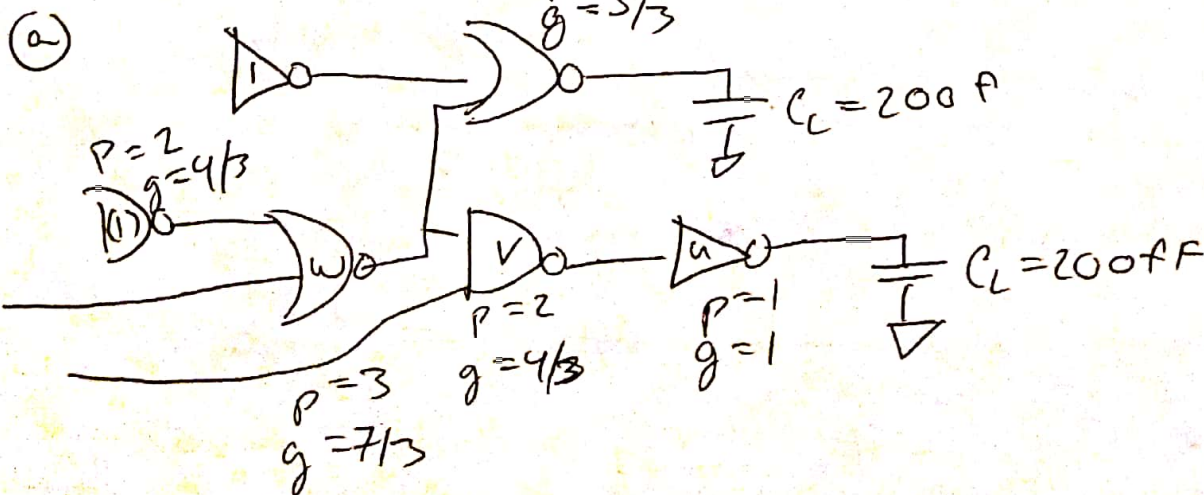 (a)
g = 5/3
1
C_L = 200 f
P = 2
g = 4/3
(1)
W
V
u
C_L = 200 fF
P = 2
g = 4/3
P = 1
g = 1
P = 3
g = 7/3